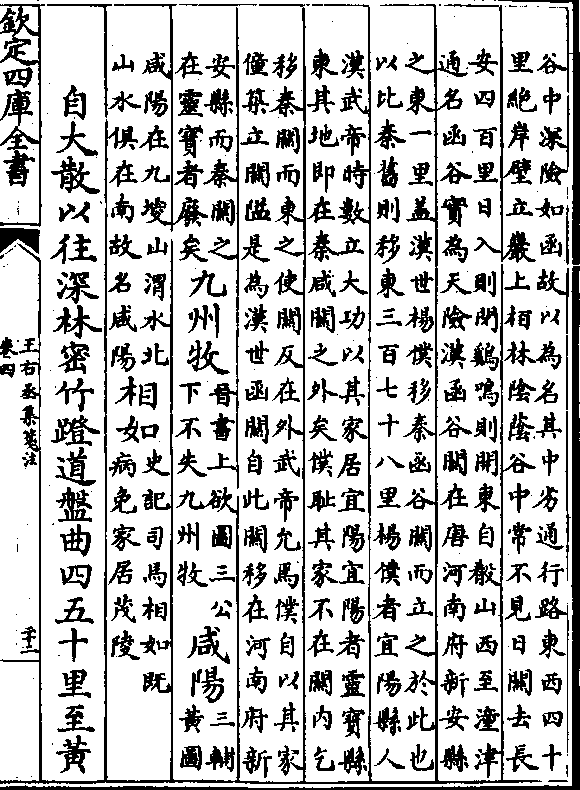 谷中深險如函故以為名其中劣通行路東西四十
里絶岸壁立巖上柏林陰蔭谷中常不見日關去長
安四百里日入則閉鷄鳴則開東自殽山西至潼津
通名函谷實為天險漢函谷關在唐河南府新安縣
之東一里葢漢世楊僕移秦函谷關而立之於此也
以比秦舊則移東三百七十八里楊僕者宜陽縣人
漢武帝時數立大功以其家居宜陽宜陽者靈寶縣
東其地即在秦咸關之外矣僕耻其家不在關内乞
移秦關而東之使關反在外武帝允焉僕自以其家
僮築立關隘是為漢世函關自此關移在河南府新
安縣而秦關之
在靈寶者廢矣
九州牧
晉書上欲圖三公
下不失九州牧
咸陽
三輔
黄圖
咸陽在九嵕山渭水北
山水俱在南故名咸陽
相如
史記司馬相如既
病免家居茂陵
自大散以往深林密竹蹬道盤曲四五十里至黄
欽定四庫全書
王右丞集箋注
卷四
二十二